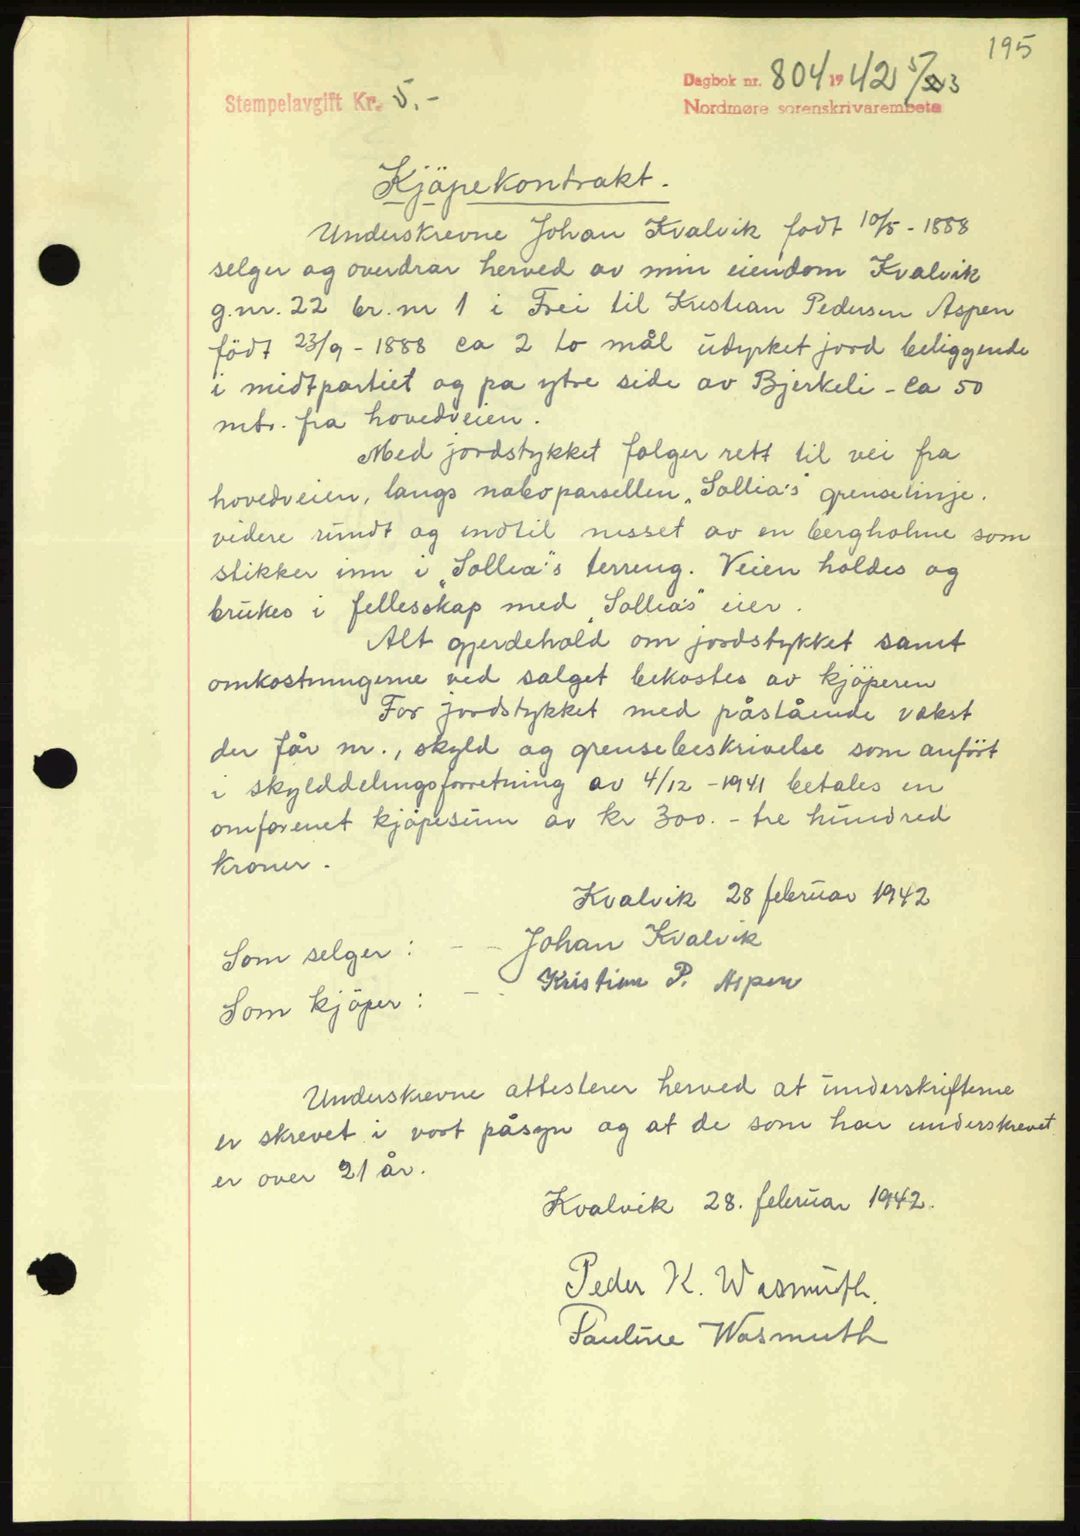 195
Dagbok nr. 804 1942 5/3
Stempelavgift Kr. 5.-
Nordmøre sorenskrivarembete
Kjöpekontrakt.
Underskrevne Johan Kvalvik født 10/5 - 1888
selger og overdrar herved av min eiendom Kvalvik
g.nr. 22 br. nr 1 i Frei til Kristian Pedersen Aspen
födt 23/9 - 1888 ca 2 to mål udyrket jord beliggende
i midtpartiet og pa ytre side av Bjerkeli - ca 50
mtr. fra hovedveien.
Med jordstykket følger rett til vei fra
hovedveien, langs naboparsellen „Sollia's" grenselinje.
videre rundt og indtil nesset av en bergholme som
stikker inn i „Sollia"s terreng. Veien holdes og
brukes i fellesskap med „Sollia's" eier.
Alt gjerdehold om jordstykket samt
omkostningerne ved salget bekostes av kjöperen
For jordstykket med påstående vekst
der får nr., skyld og grensebeskrivelse som anfört
i skylddelingsforretning av 4/12 - 1941 betales en
omforenet kjöpesum av kr 300. - tre hundred
kroner.
Kvalvik 28 februar 1942
Som selger : - - Johan Kvalvik
Som kjöper : - - Kristian P. Aspen
Underskrevne attesterer herved at underskrifterne
er skrevet i vort påsyn og at de som har underskrevet
er over 21 år.
Kvalvik 28. februar 1942.
Peder K. Wasmuth.
Pauline Wasmuth